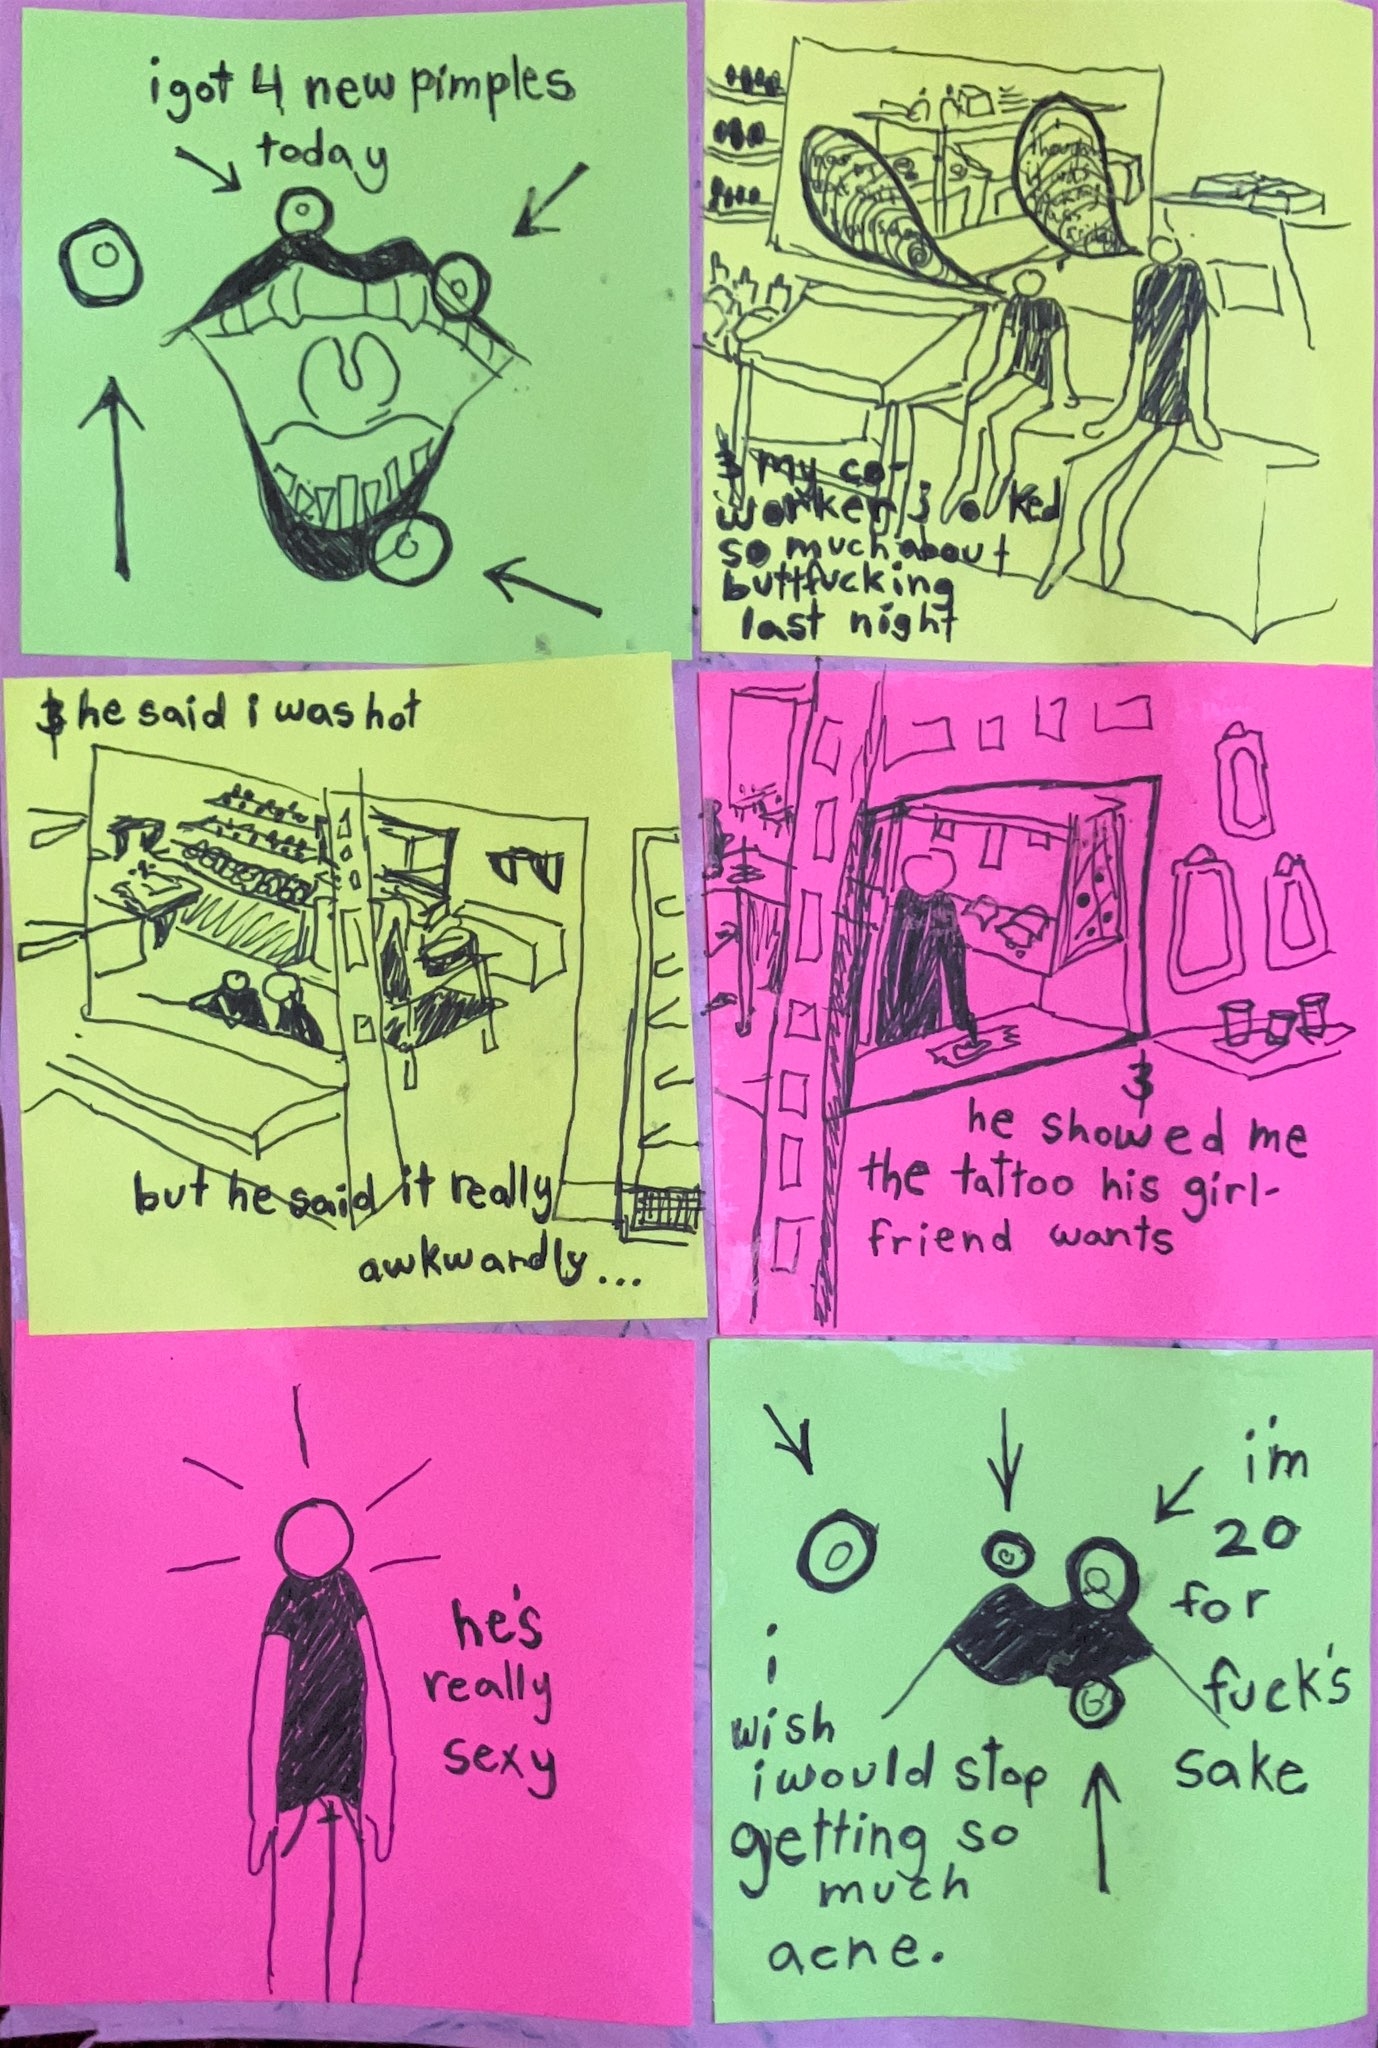 i got 4 new pimples
today
& my co-
worker & i
so much about
buttfucking
last night
& he said i was hot
but he said it really
awkwardly...
&
he showed me
the tattoo his girl-
friend wants
he's
really
sexy
i'm
20
for
fuck's
sake
i
wish
i would stop
getting so
much
acne.